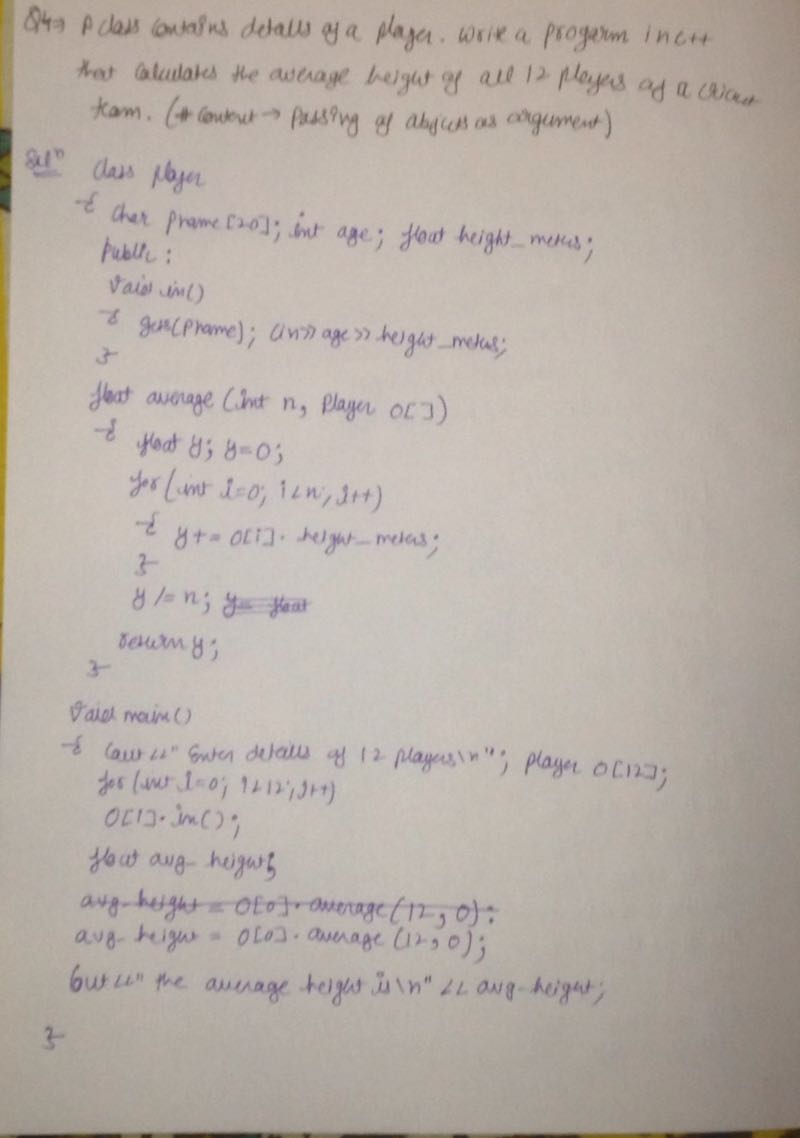 Q4⇒ A class contains details of a player. Write a progerm in c++
that calculates the average height of all 12 players of a cricket
team. (# Content → Passing of objects as argument)
Solⁿ class player
{ char pname[20]; int age; float height_meters;
public:
void in()
{ gets(pname); cin>>age>>height_meters;
}
float average (int n, player O[])
{ float y; y=0;
for (int i=0; i<n; i++)
{ y+= O[i]. height_meters;
}
y/=n; y= float
return y;
}
void main()
{ cout<<" Enter details of 12 players\n"; player O[12];
for (int i=0; i<12; i++)
O[i]. in();
float avg_height;
avg_height = O[0]. average (12, O);
avg_height = O[0]. average (12, O);
cout<<" the average height is\n" << avg_height;
}